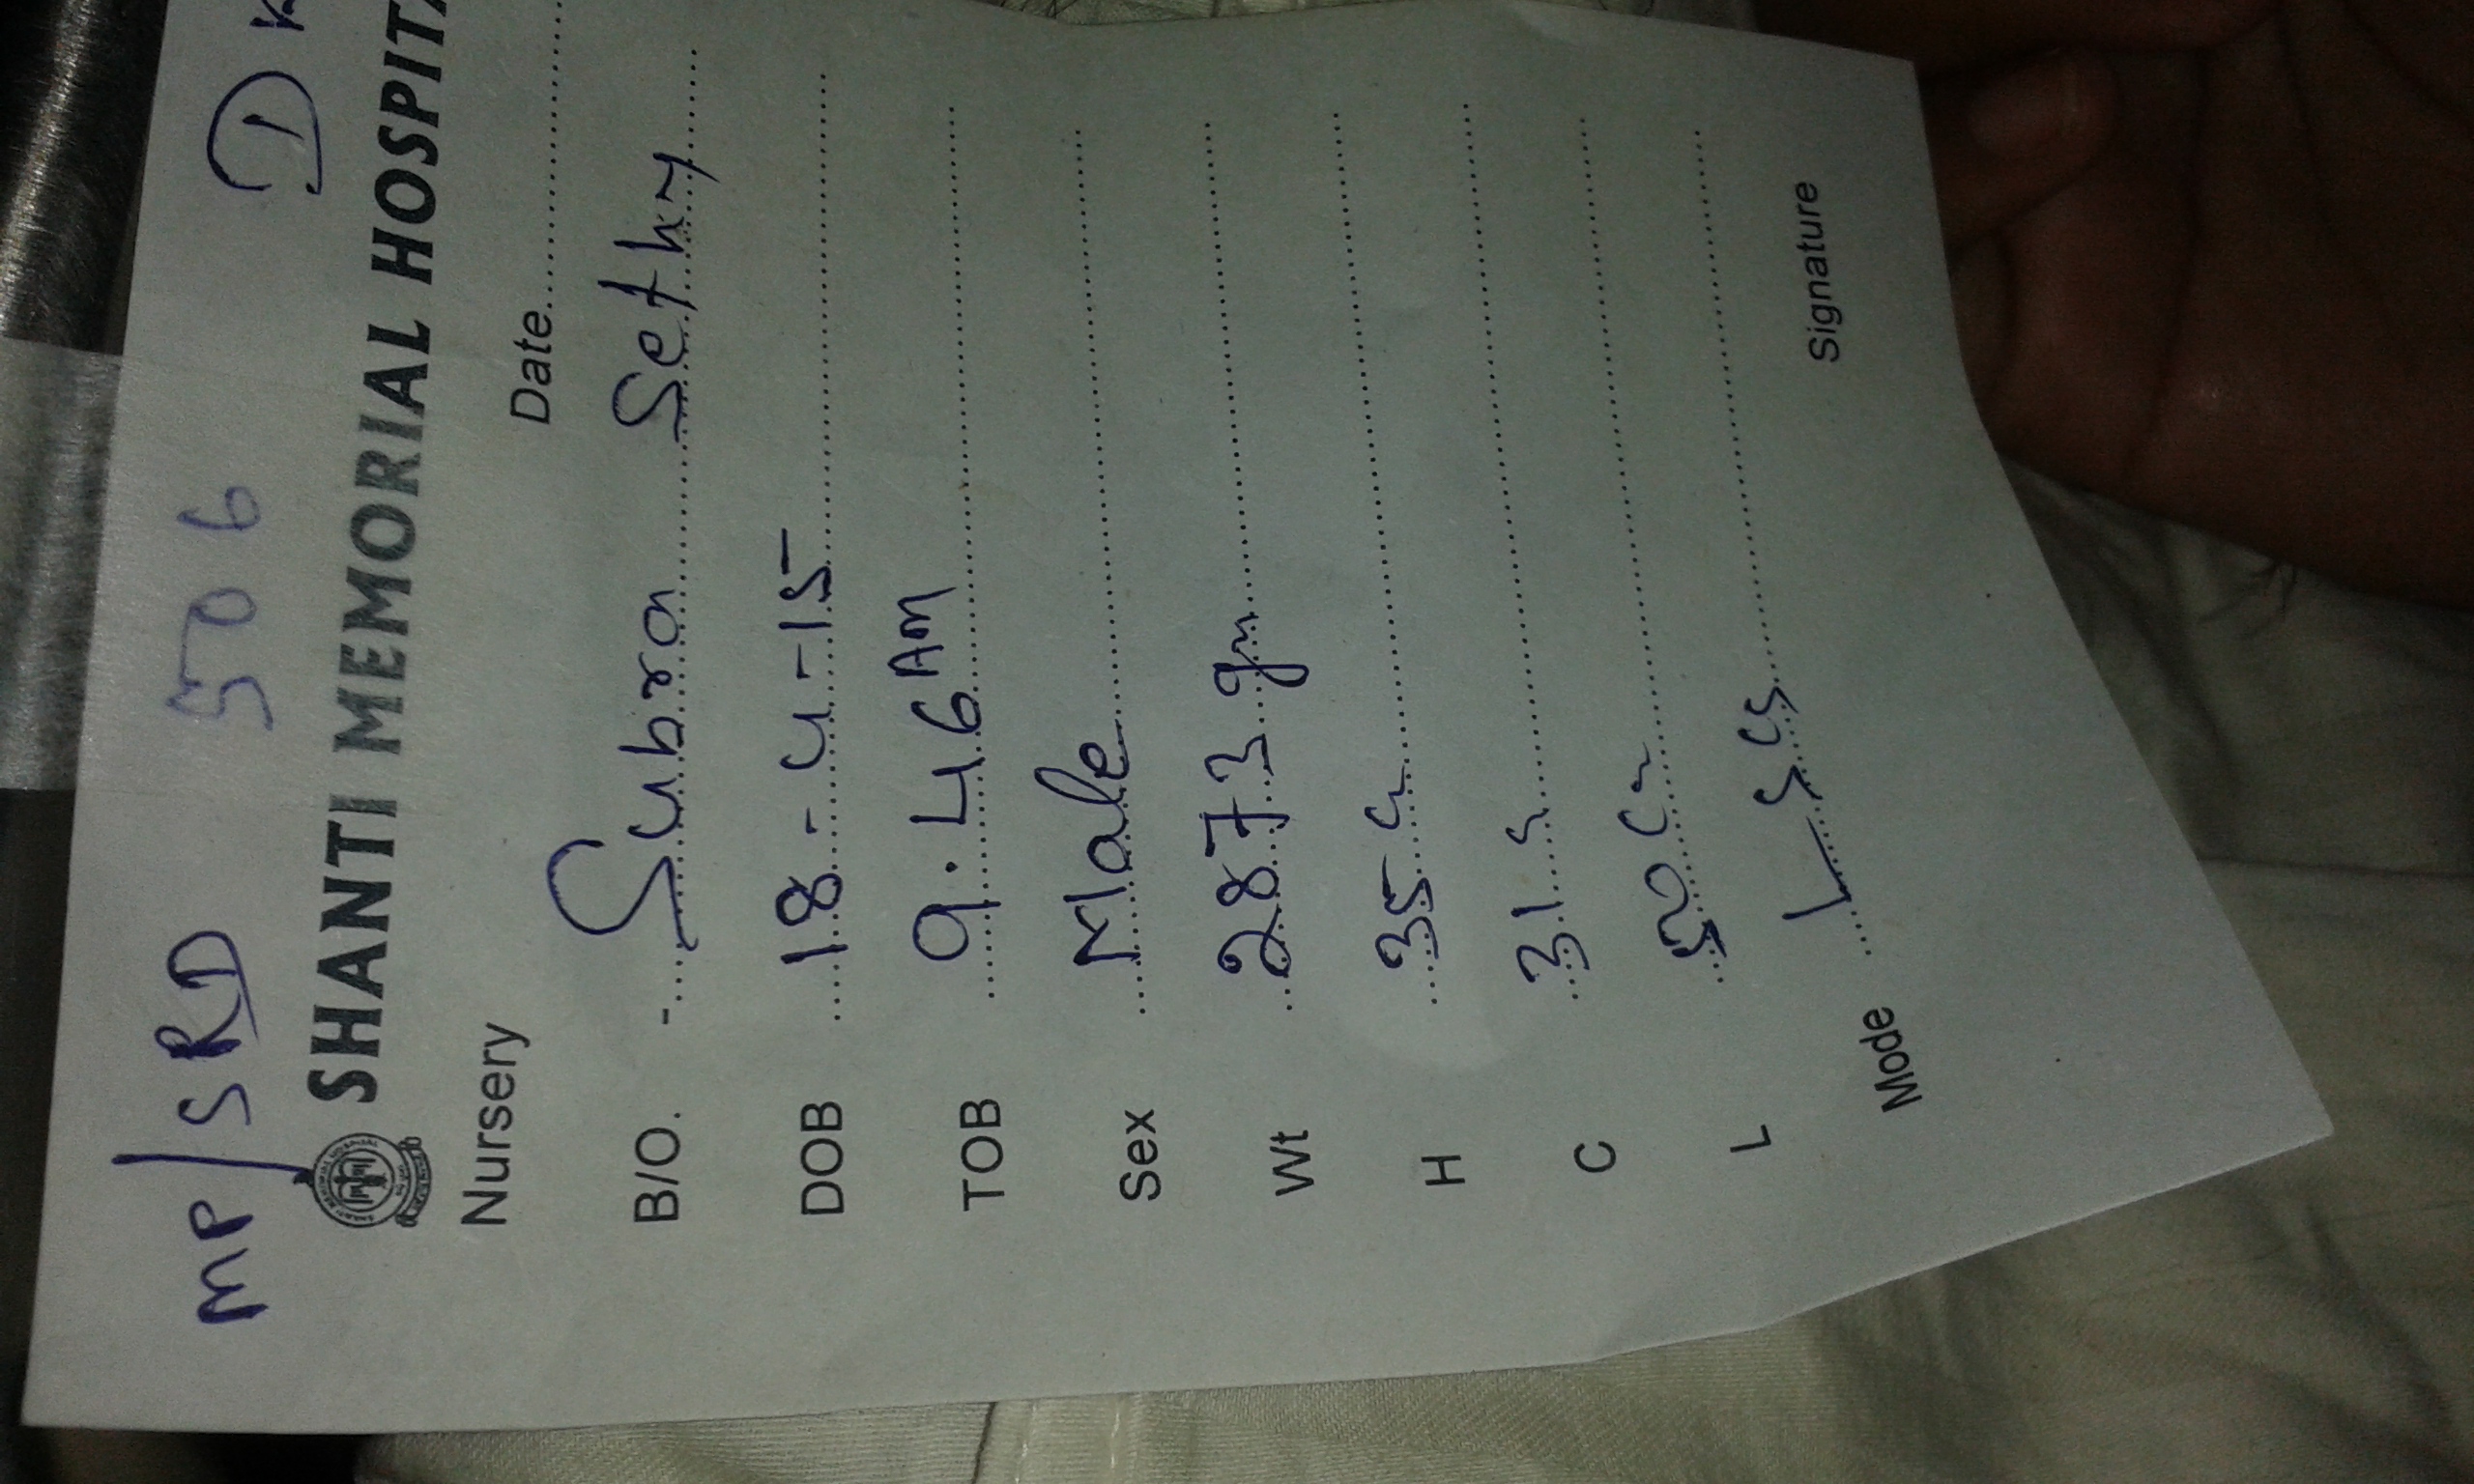 MP/SRD 506 D
SHANTI MEMORIAL HOSPITA
Nursery
Date
B/O. - Subra Sethy
DOB 18-4-15
TOB 9.46 AM
Sex Male
Wt 2873 gm
H 35 c
C 31
L 50 c
Mode LSCS
Signature